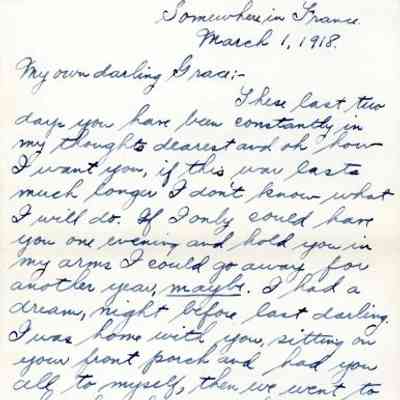 Somewhere in France
March 1, 1918.
My own darling Grace;-
These last two
days you have been constantly in
my thoughts dearest and oh how
I want you, if this war lasts
much longer I don't know what
I will do. If I only could have
you one evening and hold you in
my arms I could go away for
another year, maybe. I had a
dream, night before last darling.
I was home with you, sitting on
your front porch and had you
all to myself, then we went to